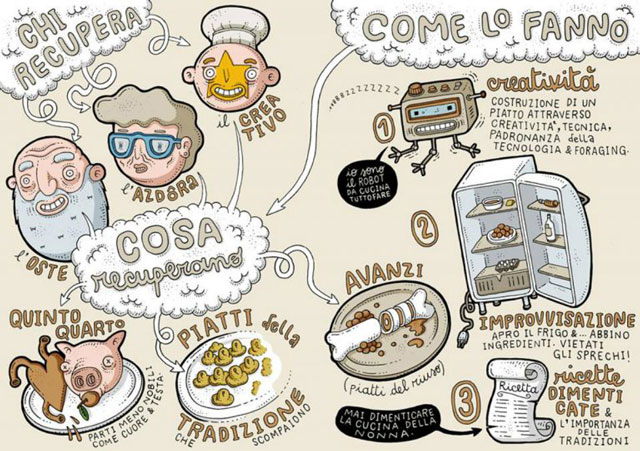 CHI
RECUPERA
il CREA
TIVO
l'AZDÔRA
l'OSTE
COSA
recuperano
QUINTO
QUARTO
PARTI MENO NOBILI
COME CUORE & TESTA
PIATTI della
TRADIZIONE
CHE SCOMPAIONO
AVANZI
(piatti del riuso)
COME LO FANNO
1
creatività
COSTRUZIONE DI UN
PIATTO ATTRAVERSO
CREATIVITA', TECNICA,
PADRONANZA della
TECNOLOGIA & FORAGING.
io sono
il ROBOT
DA CUCINA
TUTTOFARE
2
IMPROVVISAZIONE
APRO IL FRIGO &... ABBINO
INGREDIENTI. VIETATI
GLI SPRECHI!
3
Ricetta
ricette
DIMENTI
CATE &
L'IMPORTANZA
DELLE
TRADIZIONI
MAI DIMENTICARE
LA CUCINA DELLA
NONNA.